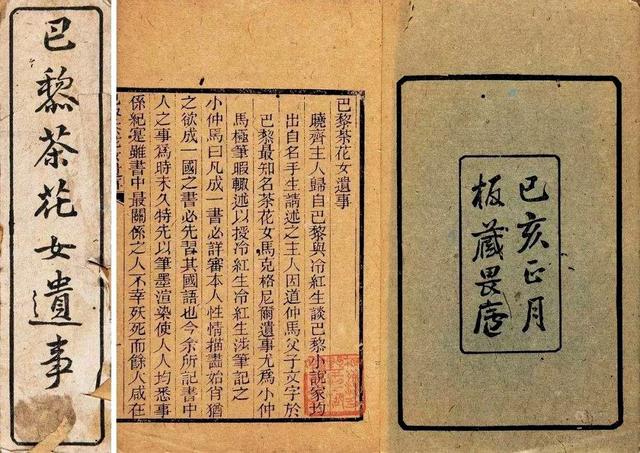 巴黎茶花女遺事
巴黎茶花女遺事
曉齋主人歸自巴黎與冷紅生談巴黎小說家均
出自名手生請述之主人因道仲馬父子文字於
巴黎最知名茶花女馬克格尼爾遺事尤爲小仲
馬極筆暇輒述以授冷紅生冷紅生涉筆記之
小仲馬曰凡成一書必詳審本人性情描畫始肖猶
之欲成一國之書必先習其國語也今余所記書中
人之事爲時未久特先以筆墨渲染使人人均悉事
係紀寔雖書中最關係之人不幸殀死而餘人咸在
己亥正月
板藏畏廬